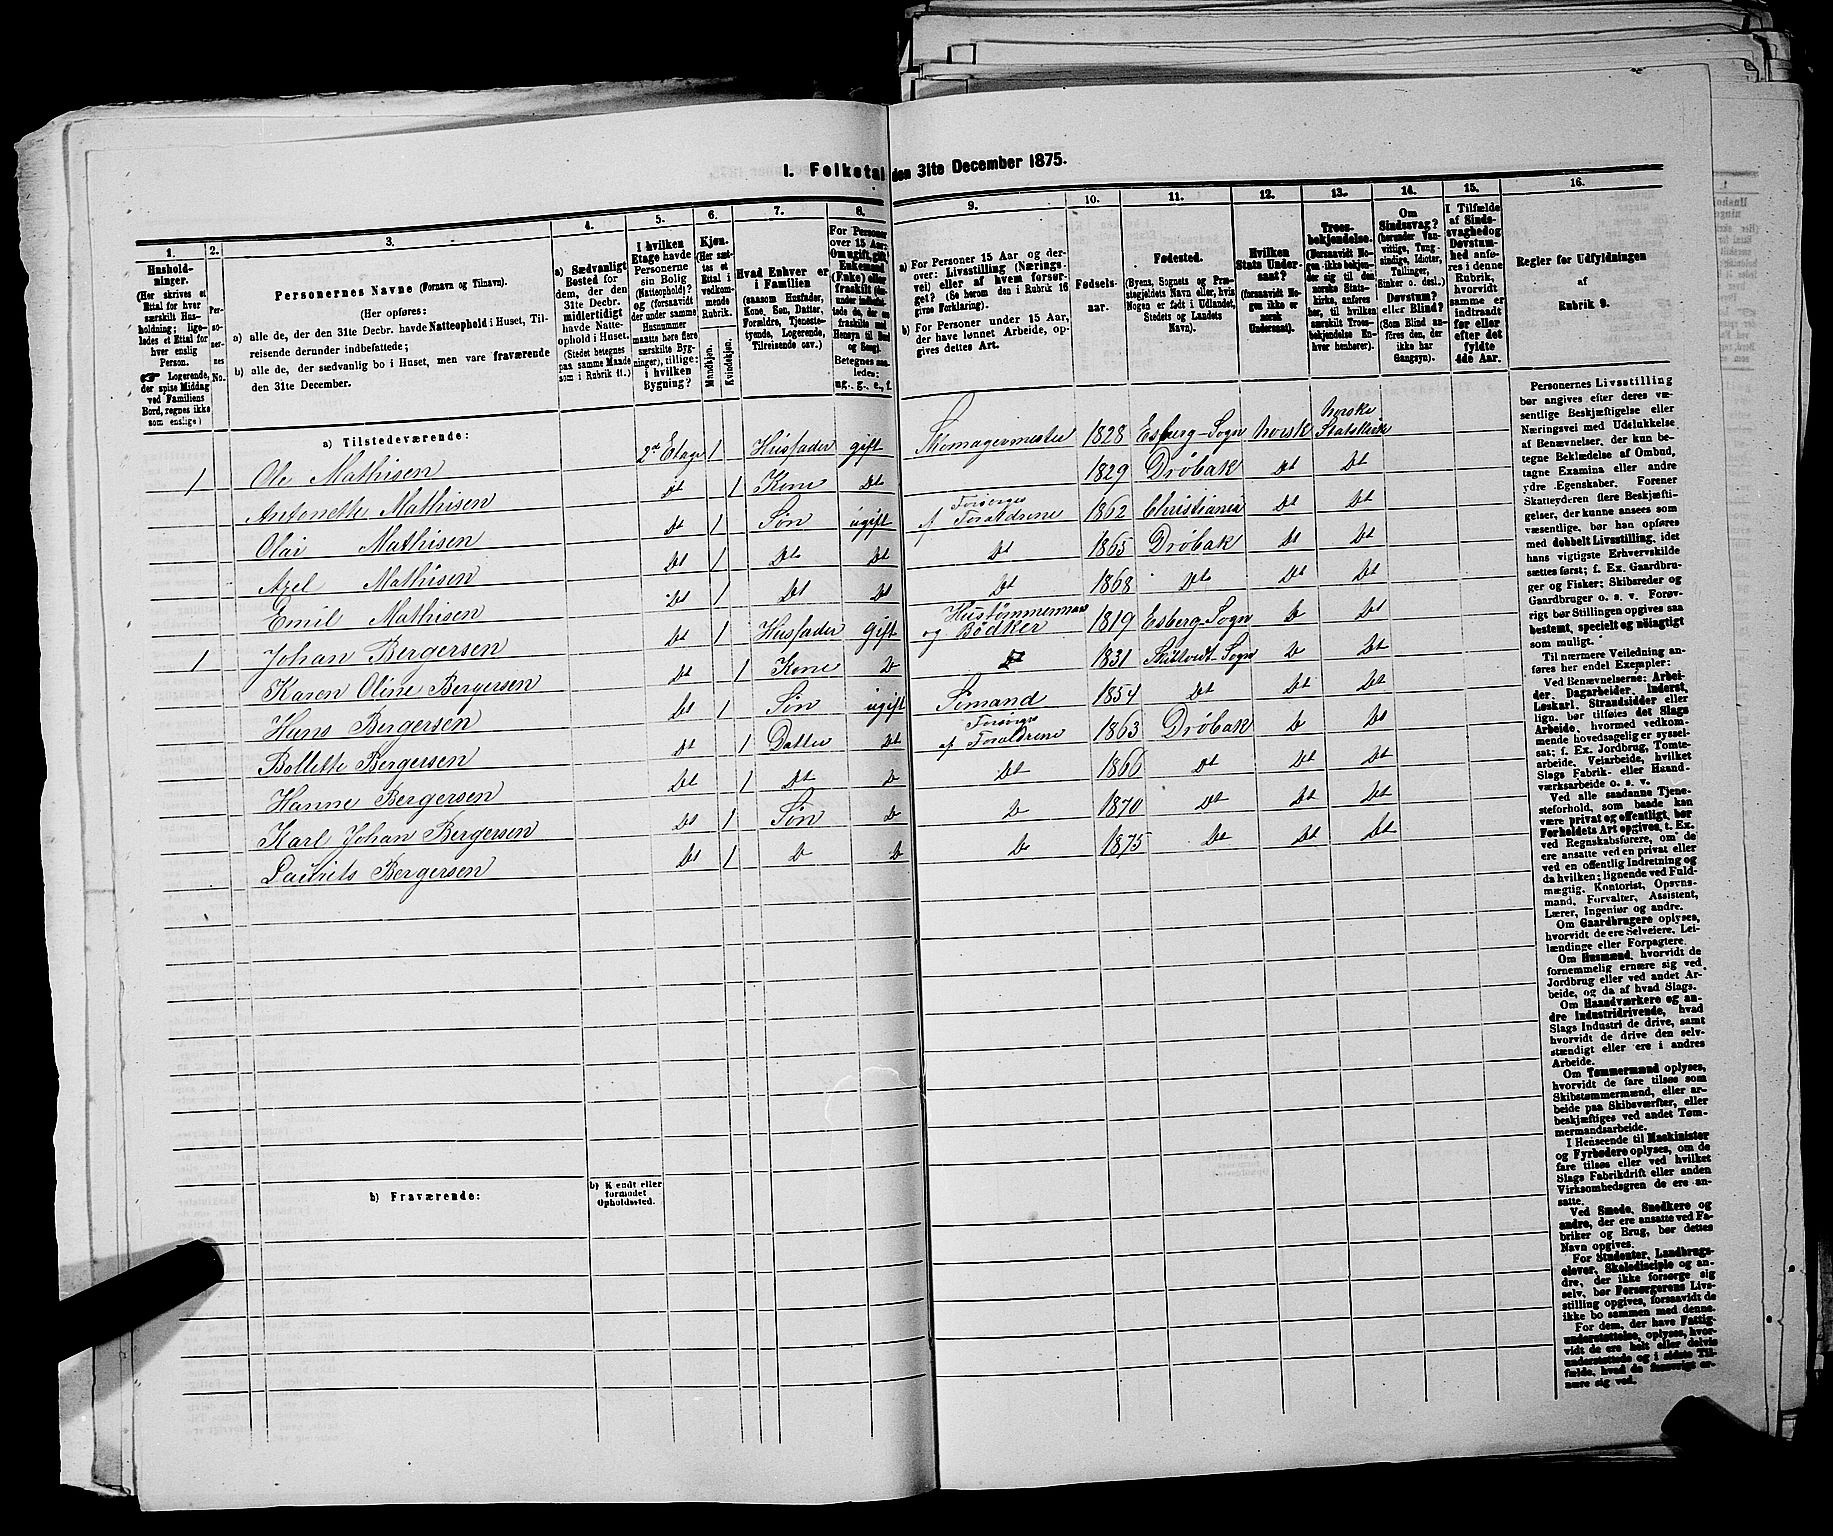 I. Folketal den 31te December 1875.
1.
Hushold-
ninger.
(Her skrives et
Ettal for hver
særskilt Hus-
holdning; lige-
ledes et Ettal for
hver enslig
Person.
☞ Logerende,
der spise Middag
ved Familiens
Bord, regnes ikke
som enslige)
2.
Per-
so-
ner-
nes
No.
3.
Personernes Navne (Fornavn og Tilnavn).
(Her opføres:
a) alle de, der den 31te Decbr. havde Natteophold i Huset, Til-
reisende derunder indbefattede;
b) alle de, der sædvanlig bo i Huset, men vare fraværende
den 31te December.
4.
a) Sædvanligt
Bosted for
dem, der den
31te Decbr.
midlertidigt
havde Natte-
ophold i Huset.
(Stedet betegnes
paa samme Maade
som i Rubrik 11.)
5.
I hvilken
Etage havde
Personerne
sin Bolig
(Natteophold)?
og (forsaavidt
der under samme
Husnummer
maatte høre flere
særskilte Byg-
ninger), tillige:
i hvilken
Bygning?
6.
Kjøn.
(Her sæt-
tes et
Ettal i
vedkom-
mende
Rubrik.
Mandkjøn.
Kvindekjøn.
7.
Hvad Enhver er
i Familien
(saasom Husfader,
Kone, Søn, Datter,
Forældre, Tjeneste-
tyende, Logerende,
Tilreisende osv.)
8.
For Personer
over 15 Aar:
Om ugift, gift,
Enkemand
(Enke) eller
fraskilt
Betegnes saa-
ledes:
ug., g., e., f.
9.
a) For Personer 15 Aar og der-
over: Livsstilling (Nærings-
vei) eller af hvem forsør-
get? (Se herom den i Rubrik 16
givne Forklaring).
b) For Personer under 15 Aar,
der have lønnet Arbeide, op-
gives dettes Art.
10.
Fødsels-
aar.
11.
Fødested.
(Byens, Sognets og Præ-
stegjeldets Navn eller, hvis
Nogen er født i Udlandet,
Stedets og Landets
Navn).
12.
Hvilken
Stats Under-
saat?
(forsaavidt No-
gen ikke er
norsk
Undersaat).
13.
Troes-
bekjendelse.
(Forsaavidt No-
gen ikke bekjen-
der sig til den
norske Stats-
kirke, anføres
her, til hvilken
særskilt Troes-
bekjendelse En-
hver henhører).
14.
Om
Sindssvag?
(herunder Van-
vittige, Tung-
sindige, Idioter,
Tullinger,
Sinker o. desl.)
Døvstum?
eller Blind?
(Som Blind an-
føres den, der
ikke har
Gangsyn).
15.
I Tilfælde
af Sinds-
svaghed og
Døvstum-
hed anfø-
res i denne
Rubrik,
hvorvidt
samme er
indtraadt
før eller
efter det
fyldte
4de Aar.
16.
Regler for Udfyldningen
af
Rubrik 9.
a) Tilstedeværende:
1 Ole Mathisen 2de Etage 1 Husfader gift Skomagermester 1828 Esberg-Sogn Norsk norske Statskirk
Antonette Mathisen Dt 1 Kone Dt 1829 Drøbak Dt Dt
Olai Mathisen Dt 1 Søn ugift Forsørges af Foraldrene 1862 Christiania Dt Dt
Axel Mathisen Dt 1 Dt Dt Dt 1865 Drøbak Dt Dt
Emil Mathisen Dt 1 Dt Dt Dt 1868 Dt Dt Dt
1 Johan Bergersen Dt 1 Husfader Gift Hustømmermand og Bødker 1819 Esberg-Sogn Do Dt
Karen Oline Bergersen Dt 1 Kone Do 1831 Skibtvedt-Sogn Do Dt
Hans Bergersen Dt 1 Søn ugift Sømand 1854 Dt Dt Dt
Bollette Bergersen Dt 1 Datter Dt Forsørges af Foraldrene 1863 Drøbak Do Dt
Hanne Bergersen Dt 1 Dt Do Dt 1866 Dt Dt Dt
Karl Johan Bergersen Dt 1 Søn Do Do 1870 Dt Dt Dt
Bergersen Dt 1 Do Do Do 1875 Dt Dt Dt
b) Fraværende:
b) Kjendt eller
formodet
Opholdssted.
Personernes Livsstilling
bør angives efter deres væ-
sentlige Beskjæftigelse eller
Næringsvei med Udelukkelse
af Benævnelser, der kun be-
tegne Beklædelse af Ombud,
tagne Examina eller andre
ydre Egenskaber. Forener
Skatteyderen flere Beskjæfti-
gelser, der kunne ansees som
væsentlige, bør han opføres
med dobbelt Livsstilling, idet
hans vigtigste Erhvervskilde
sættes først; f. Ex. Gaardbru-
ger og Fisker; Skibsreder og
Gaardbruger o. s. v. Forøv-
rigt bør Stillingen opgives saa
bestemt, specielt og nøiagtigt
som muligt.
Til nærmere Veiledning an-
føres her endel Exempler:
Ved Benævnelserne: Arbei-
der, Dagarbeider, Inderst,
Løskarl, Strandsidder eller
lign. bør tilføies det Slags
Arbeide, hvormed vedkom-
mende hovedsagelig er syssel-
sat; f. Ex. Jordbrug, Tomte-
arbeide, Veiarbeide, hvilket
Slags Fabrik- eller Haand-
værksarbeide o. s. v.
Ved alle saadanne Tjene-
steforhold, som baade kan
være privat og offentligt, bør
Forholdets Art opgives, t. Ex.
ved Regnskabsførere, om de
ere ansatte ved en privat eller
ved en offentlig Indretning og
da hvilken; lignende ved Fuld-
mægtig, Kontorist, Opsyns-
mand, Forvalter, Assistent,
Lærer, Ingeniør og andre.
Om Gaardbrugere oplyses,
hvorvidt de ere Selveiere, Lei-
lændinge eller Forpagtere.
Om Husmænd, hvorvidt de
fornemmelig ernære sig ved
Jordbrug eller ved andet Ar-
beide, og da af hvad Slags.
Om Haandværkere og an-
dre industridrivende, hvad
Slags Industri de drive, samt
hvorvidt de drive den selv-
stændigt eller ere i andres
Arbeide.
Om Tømmermænd oplyses,
hvorvidt de fare tilsøs som
Skibstømmermænd, eller ar-
beide paa Skibsværfter, eller
beskjæftiges ved andet Tøm-
mermandsarbeide.
I Henseende til Maskinister
og Fyrbødere oplyses, om de
fare tilsøs eller ved hvilket
Slags Fabrikdrift eller anden
Virksomhedsgren de ere an-
satte.
Ved Smede, Snedkere og
andre, der ere ansatte ved Fa-
briker og Brug, bør dettes
Navn opgives.
For Studenter, Landbrugs-
elever, Skoledisciple og an-
dre, der ikke forsørge sig
selv, bør Forsørgerens Livs-
stilling opgives, forsaavidt de
ikke bo sammen med denne.
For dem, der have Fattig-
understøttelse, oplyses, hvor-
vidt de ere helt eller delvis
understøttede og i sidste Til-
fælde, hvad de forøvrigt er-
nære sig ved.